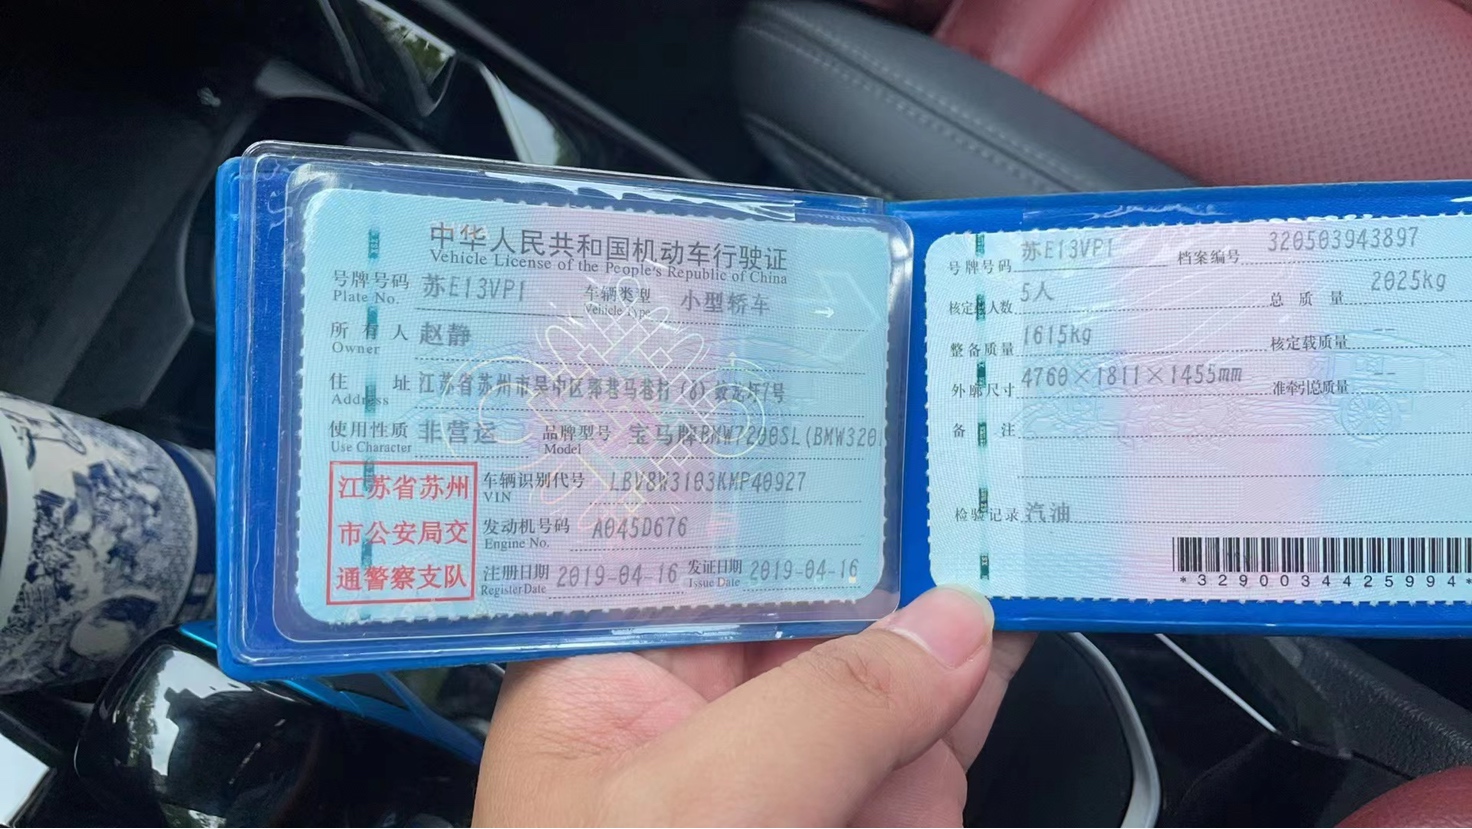 中华人民共和国机动车行驶证
Vehicle License of the People's Republic of China
号牌号码 苏E13VP1 车辆类型 小型轿车
Plate No. Vehicle Type
所有人 赵静
Owner
住址 江苏省苏州市吴中区
Address
使用性质 非营运 品牌型号 宝马牌BMW7200SL(BMW320
Use Character Model
江苏省苏州
市公安局交
通警察支队
车辆识别代号 LBV8W3103KMP40927
VIN
发动机号码 A045D676
Engine No.
注册日期 2019-04-16 发证日期 2019-04-16
Register Date Issue Date
号牌号码 苏E13VP1 档案编号 320503943897
核定载人数 5人 总质量 2025kg
整备质量 1615kg 核定载质量 --
外廓尺寸 4760×1811×1455mm 准牵引总质量 --
备注
检验记录 汽油
*3290034425994*